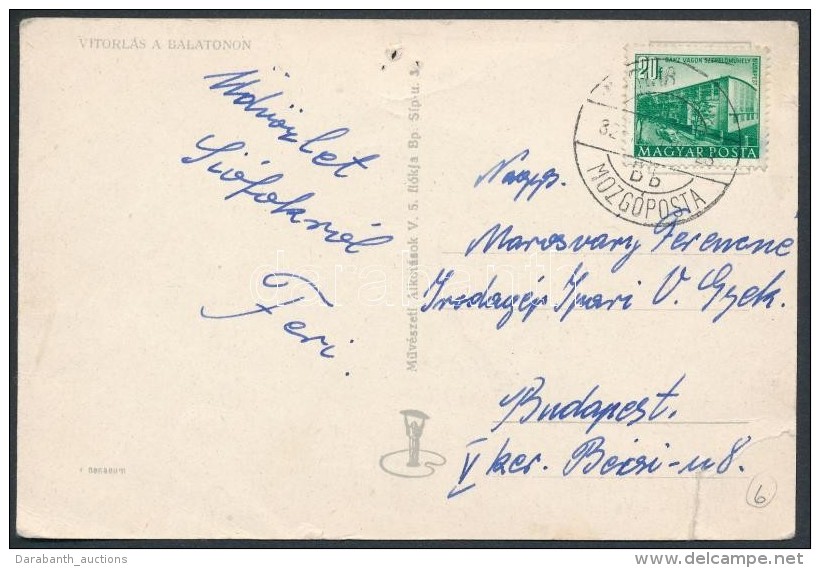 VITORLÁS A BALATONON
Üdvözlet
Siófokról
Feri.
Művészeti Alkotások V. 5. fiókja Bp. Síp-u. 3.
20f
GANZ VAGON SZERELŐMŰHELY BUDAPEST
MAGYAR POSTA
82
BB
MOZGÓPOSTA
Nagys.
Marosváry Ferencné
Irodagép Ipari V. Gyek.
Budapest.
V ker. Bécsi-u 8.
6
darabanth
Darabanth_auctions
www.delcampe.net